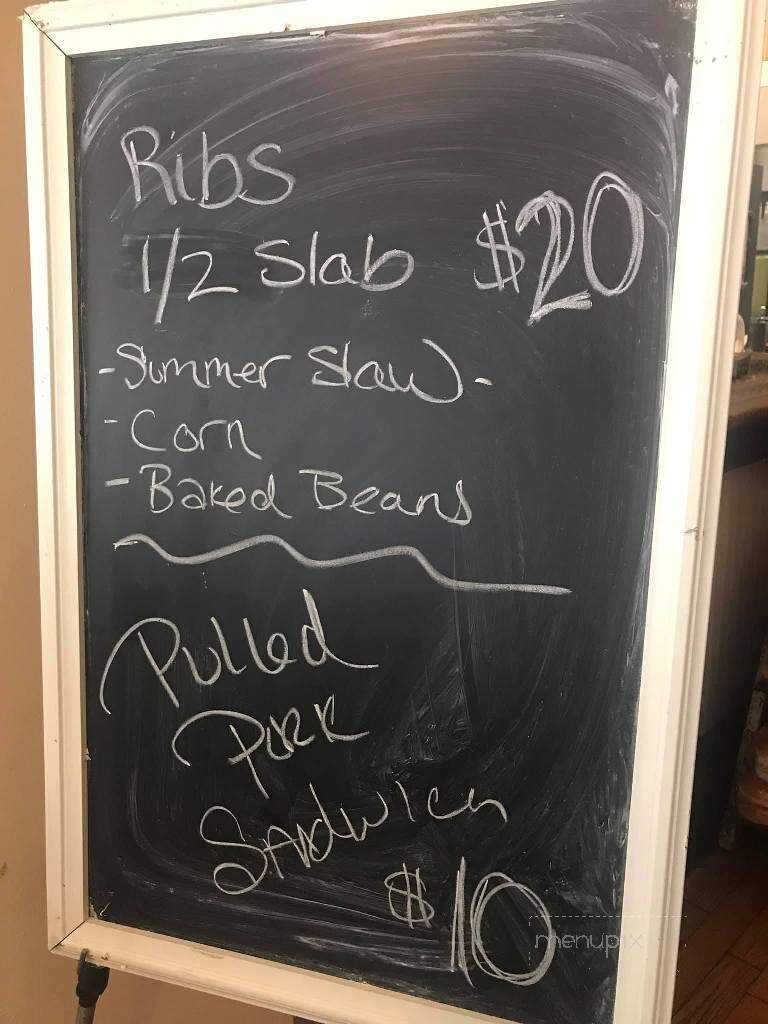 Ribs
1/2 Slab $20
- Summer Slaw -
- Corn
- Baked Beans
Pulled
Pork
Sandwich
$10
menupix